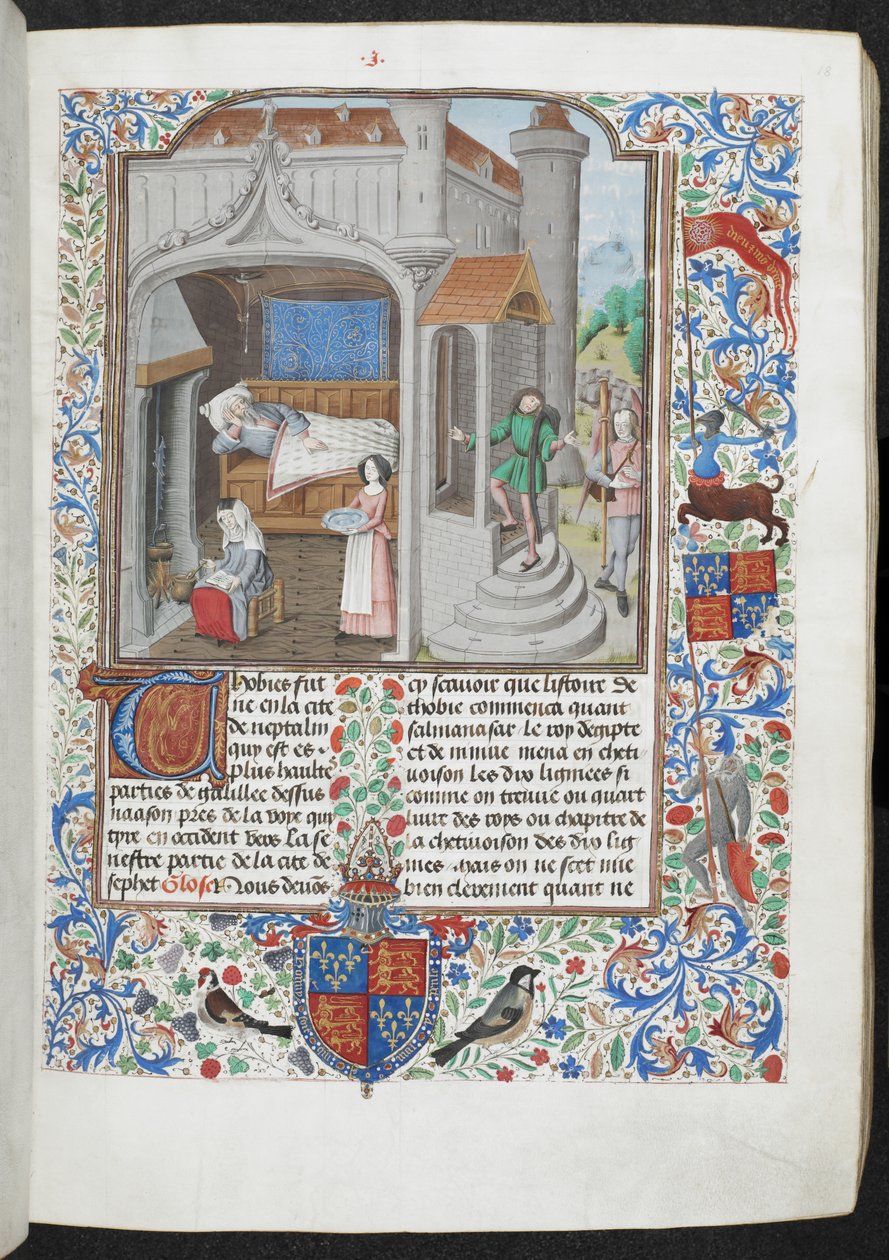 .J.
18
dieu & mo droit
Thobies fut
ne en la cite
de neptalin
quy est es
plus haultes
parties de galillee dessus
naason pres de la voye quy
tyre en occident vers la se
nestre partie de la cite de
sephet Glose Nous deuos
cy scauoir que listoire de
thobie commenca quant
salmanasar le roy degipte
et de niniue mena en cheti
uoison les dix lignies si
comme on treuue ou quart
liure des roys ou chapitre de
la chetiuoison des dix lig
nies. Mais on ne scet mie
bien clerement quant ne